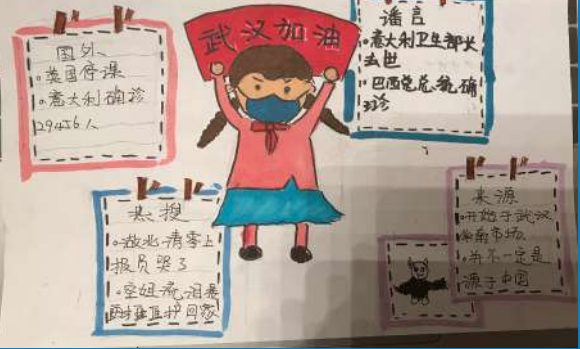 武汉加油
国外
•美国停课
•意大利确诊
29456人
谣言
•意大利卫生部长
去世
•巴西总统确
诊
热搜
•湖北清零上
报员哭了
•空姐流泪
护回家
来源
•开始于武汉
华南市场
•并不一定是
源于中国